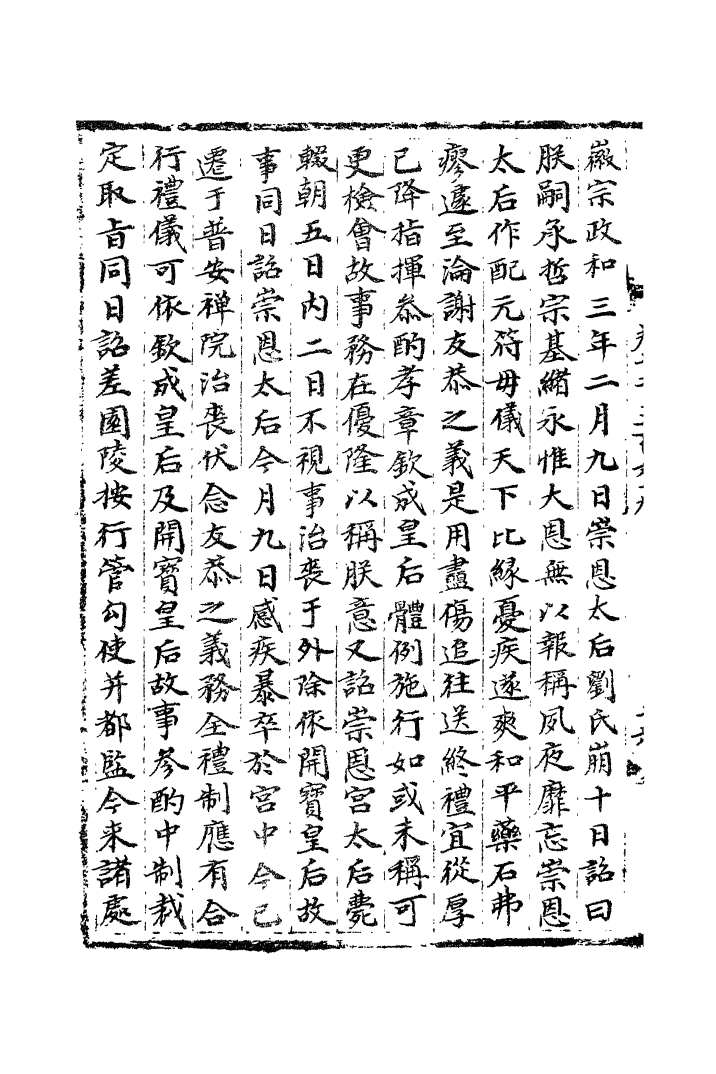 徽宗政和三年二月九日崇恩太后劉氏崩十日詔曰
朕嗣承哲宗基緒永惟大恩無以報稱夙夜靡忘崇恩
太后作配元符毋儀天下比縁憂疾遂爽和平藥石弗
瘳遽至淪謝友恭之義是用盡傷追往送終禮宜從厚
已降指揮叅酌孝章欽成皇后體例施行如或未稱可
更檢會故事務在優隆以稱朕意又詔崇恩宮太后薨
輟朝五日内二日不視事治喪于外除依開寶皇后故
事同日詔崇恩太后今月九日感疾暴卒於宮中今已
遷于普安禅院治喪伏念友恭之義務全禮制應有合
行禮儀可依欽成皇后及開寶皇后故事參酌中制裁
定取旨同日詔差園陵按行管勾使并都監今来諸處